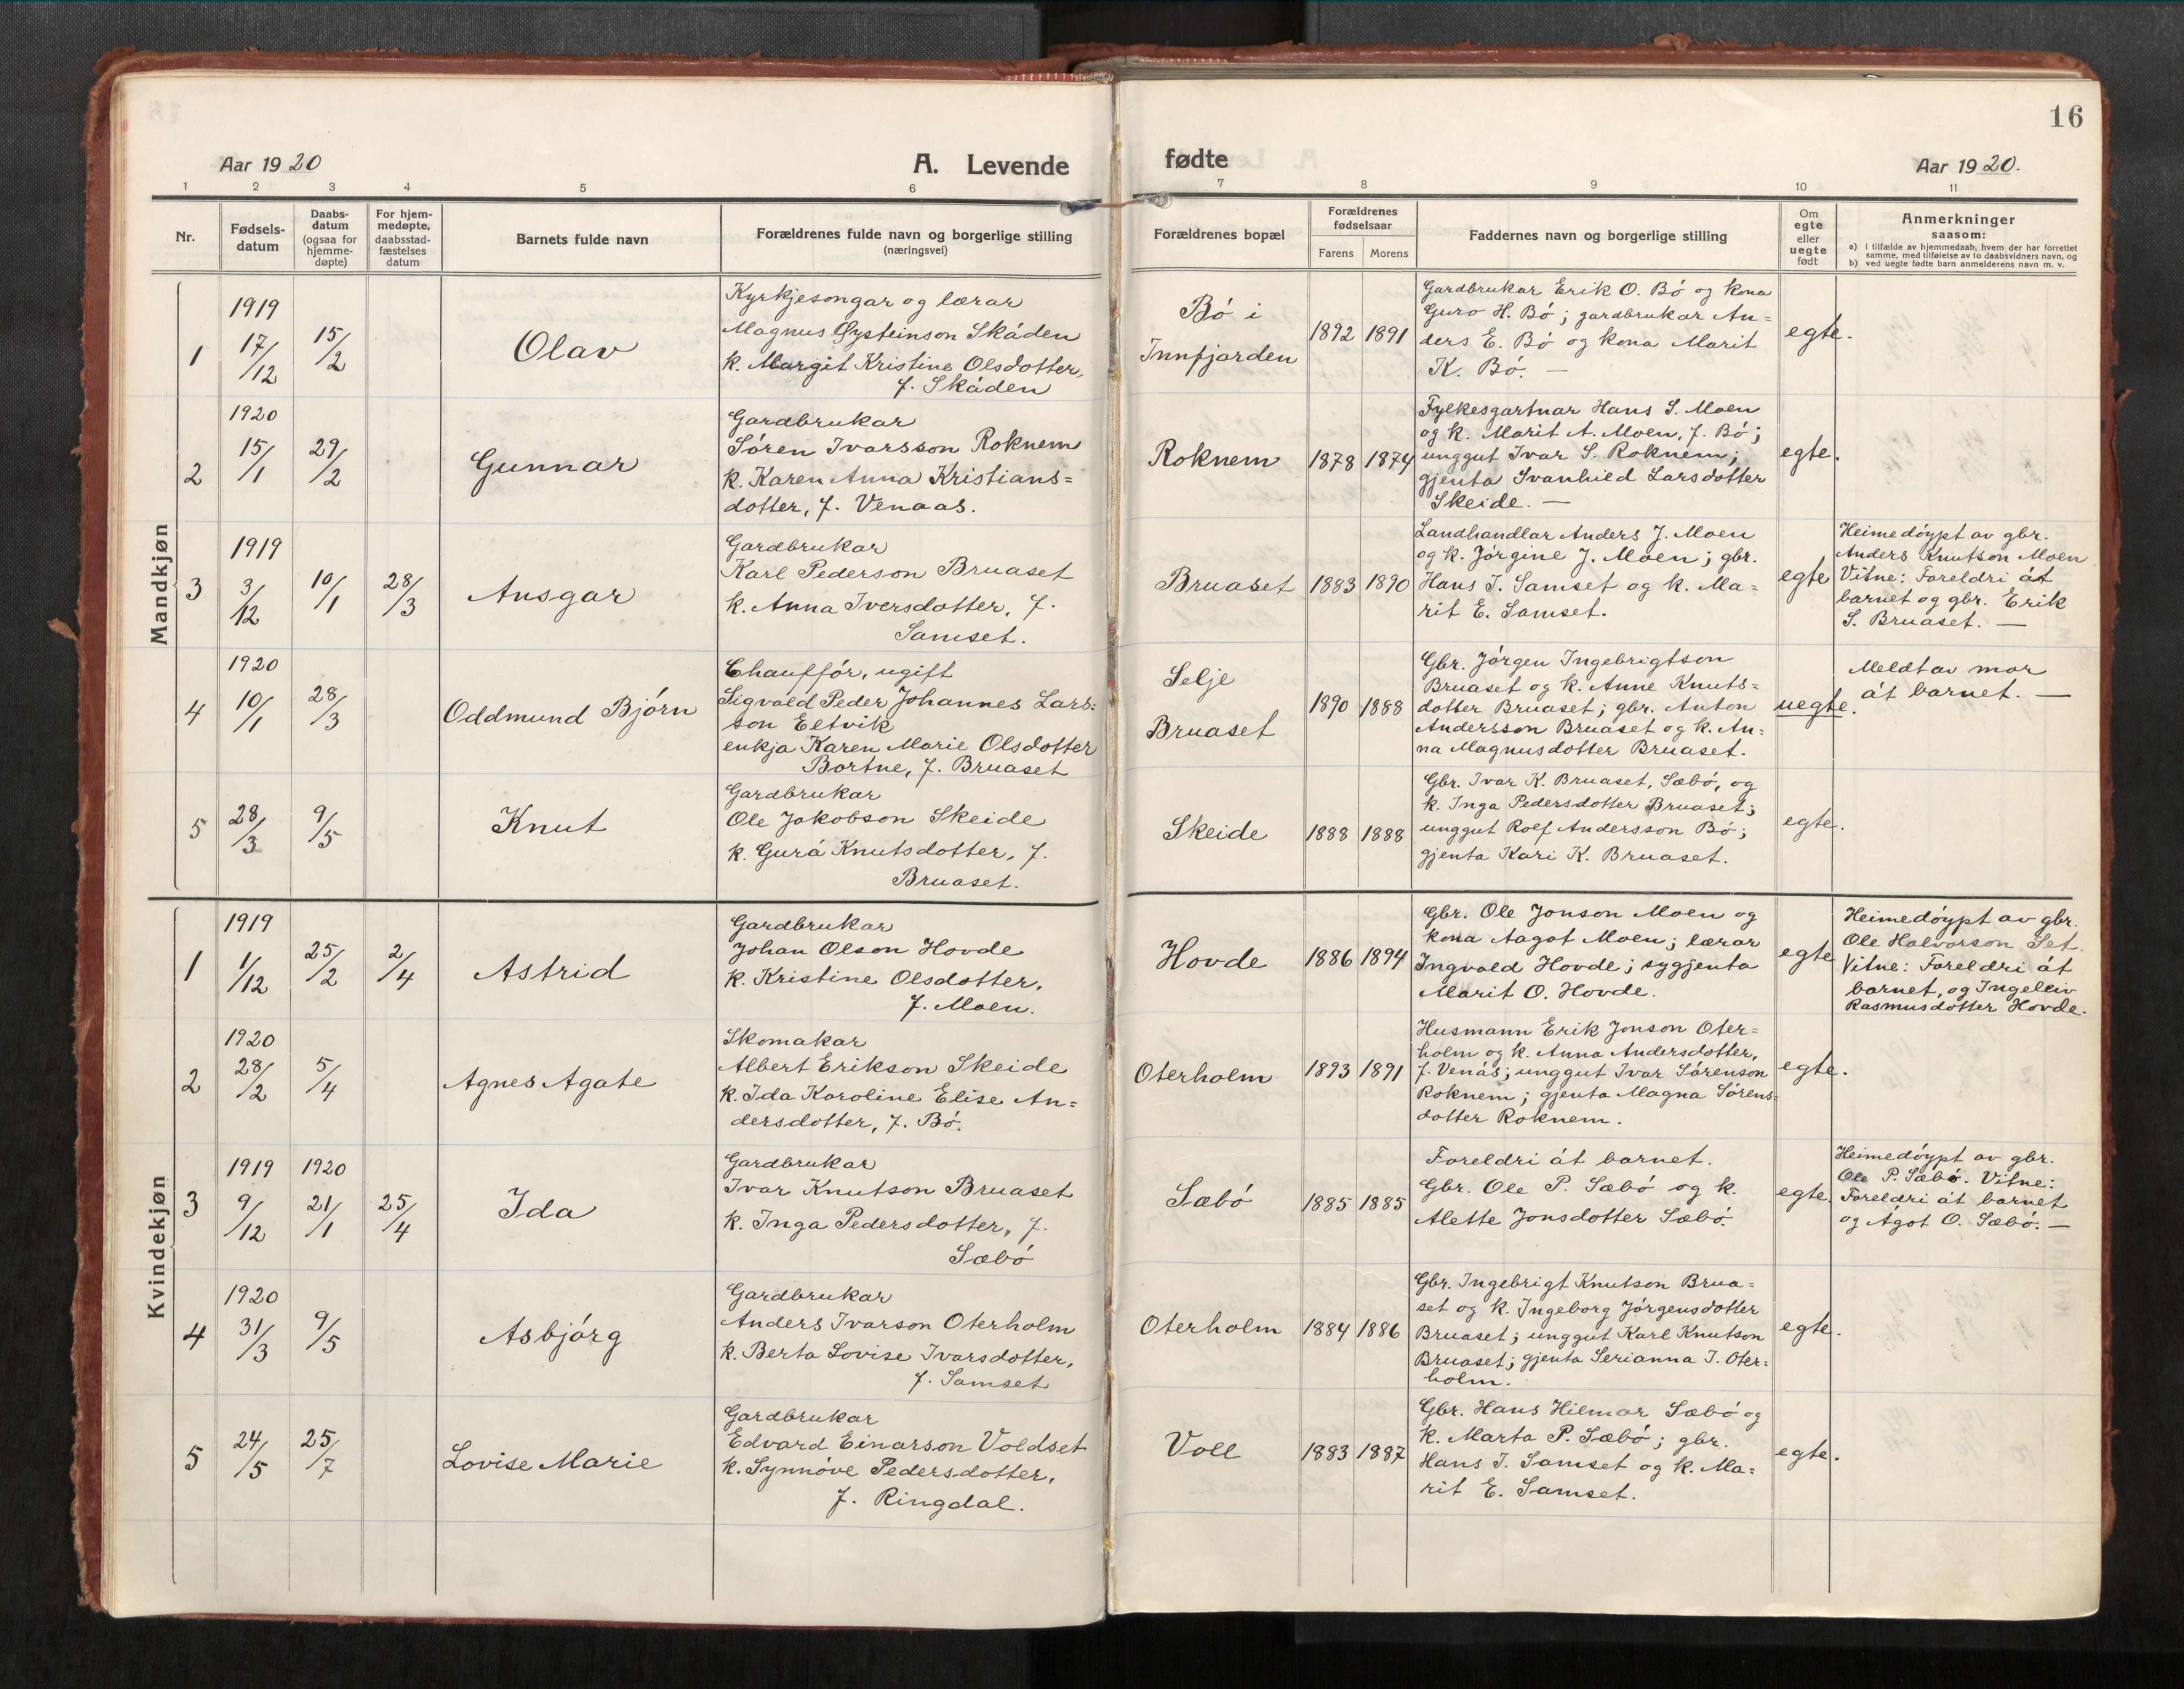 16
Aar 1920
A. Levende
fødte
Aar 1920.
1 2 3 4 5 6 7 8 9 10 11
Nr.
Fødsels-
datum
Daabs-
datum
(ogsaa for
hjemme-
døpte)
For hjem-
medøpte,
daabsstad-
fæstelses
datum
Barnets fulde navn
Forældrenes fulde navn og borgerlige stilling
(næringsvei)
Forældrenes bopæl
Forældrenes
fødselsaar
Farens Morens
Faddernes navn og borgerlige stilling
Om
egte
eller
uegte
født
Anmerkninger
saasom:
a) i tilfælde av hjemmedaab, hvem der har forrettet
samme, med tilføielse av to daabsvidners navn, og
b) ved uegte fødte barn anmelderens navn m. v.
Mandkjøn
1
1919
17/12
15/2
Olav
Kyrkjesongar og lærar
Magnus Øysteinson Skáden
k. Margit Kristine Olsdotter,
f. Skáden
Bó i
Innfjorden
1892 1891
Gardbrukar Erik O. Bó og kona
Guro H. Bó; gardbrukar An=
ders E. Bó og kona Marit
K. Bó. —
egte.
2
1920
15/1
29/2
Gunnar
Gardbrukar
Sóren Ivarsson Roknem
k. Karen Anna Kristians=
dotter, f. Venaas.
Roknem
1878 1874
Fylkesgartnar Hans S. Moen
og k. Marit A. Moen, f. Bó;
unggut Ivar S. Roknem;
gjenta Svanhild Larsdotter
Skeide. —
egte.
3
1919
3/12
10/1
28/3
Ansgar
Gardbrukar
Karl Pederson Bruaset
k. Anna Iversdotter, f.
Samset.
Bruaset
1883 1890
Landhandlar Anders J. Moen
og k. Jórgine J. Moen; gbr.
Hans J. Samset og k. Ma=
rit E. Samset.
egte
Heimedóypt av gbr.
Anders Knutson Moen
Vitne: Foreldri át
barnet og gbr. Erik
S. Bruaset. —
4
1920
10/1
28/3
Oddmund Bjórn
Chauffór, ugift
Sigvald Peder Johannes Lars=
son Eltvik
enkja Karen Marie Olsdotter
Bortne, f. Bruaset
Selje
Bruaset
1890 1888
Gbr. Jórgen Ingebrigtson
Bruaset og k. Anne Knuts=
dotter Bruaset; gbr. Anton
Andersson Bruaset og k. An=
na Magnusdotter Bruaset.
uegte.
Meldt av mor
át barnet. —
5
28/3
9/5
Knut
Gardbrukar
Ole Jakobson Skeide
k. Gurá Knutsdotter, f.
Bruaset.
Skeide
1888 1888
Gbr. Ivar K. Bruaset, Sæbó, og
k. Inga Pedersdotter Bruaset;
unggut Rolf Andersson Bó;
gjenta Kari K. Bruaset.
egte.
Kvindekjøn
1
1919
1/12
25/2
2/4
Astrid
Gardbrukar
Johan Olson Hovde
k. Kristine Olsdotter,
f. Moen.
Hovde
1886 1894
Gbr. Ole Jonson Moen og
kona Aagot Moen; lærar
Ingvald Hovde; sygjenta
Marit O. Hovde.
egte
Heimedóypt av gbr.
Ole Halvorson Set.
Vitne: Foreldri át
barnet, og Ingeleiv
Rasmusdotter Hovde.
2
1920
28/2
5/4
Agnes Agate
Skomakar
Albert Erikson Skeide
k. Ida Karoline Elise An=
dersdotter, f. Bó.
Oterholm
1893 1891
Husmann Erik Jonson Oter=
holm og k. Anna Andersdotter,
f. Venás; unggut Ivar Sórenson
Roknem; gjenta Magna Sórens=
dotter Roknem.
egte.
3
1919
9/12
1920
21/1
25/4
Ida
Gardbrukar
Ivar Knutson Bruaset
k. Inga Pedersdotter, f.
Sæbó
Sæbó
1885 1885
Foreldri át barnet.
Gbr. Ole P. Sæbó og k.
Alette Jonsdotter Sæbó.
egte.
Heimedóypt av gbr.
Ole P. Sæbó. Vitne:
Foreldri át barnet
og Ágot O. Sæbó. —
4
1920
31/3
9/5
Asbjórg
Gardbrukar
Anders Ivarson Oterholm
k. Berta Lovise Ivarsdotter,
f. Samset
Oterholm
1884 1886
Gbr. Ingebrigt Knutson Brua=
set og k. Ingeborg Jórgensdotter
Bruaset; unggut Karl Knutson
Bruaset; gjenta Serianna I. Oter=
holm.
egte.
5
24/5
25/7
Lovise Marie
Gardbrukar
Edvard Einarson Voldset
k. Synnóve Pedersdotter,
f. Ringdal.
Voll
1883 1887
Gbr. Hans Hilmar Sæbó og
k. Marta P. Sæbó; gbr.
Hans J. Samset og k. Ma=
rit E. Samset.
egte.